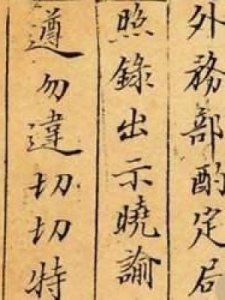 外務部酌定后
照錄出示曉諭
遵勿違切切特